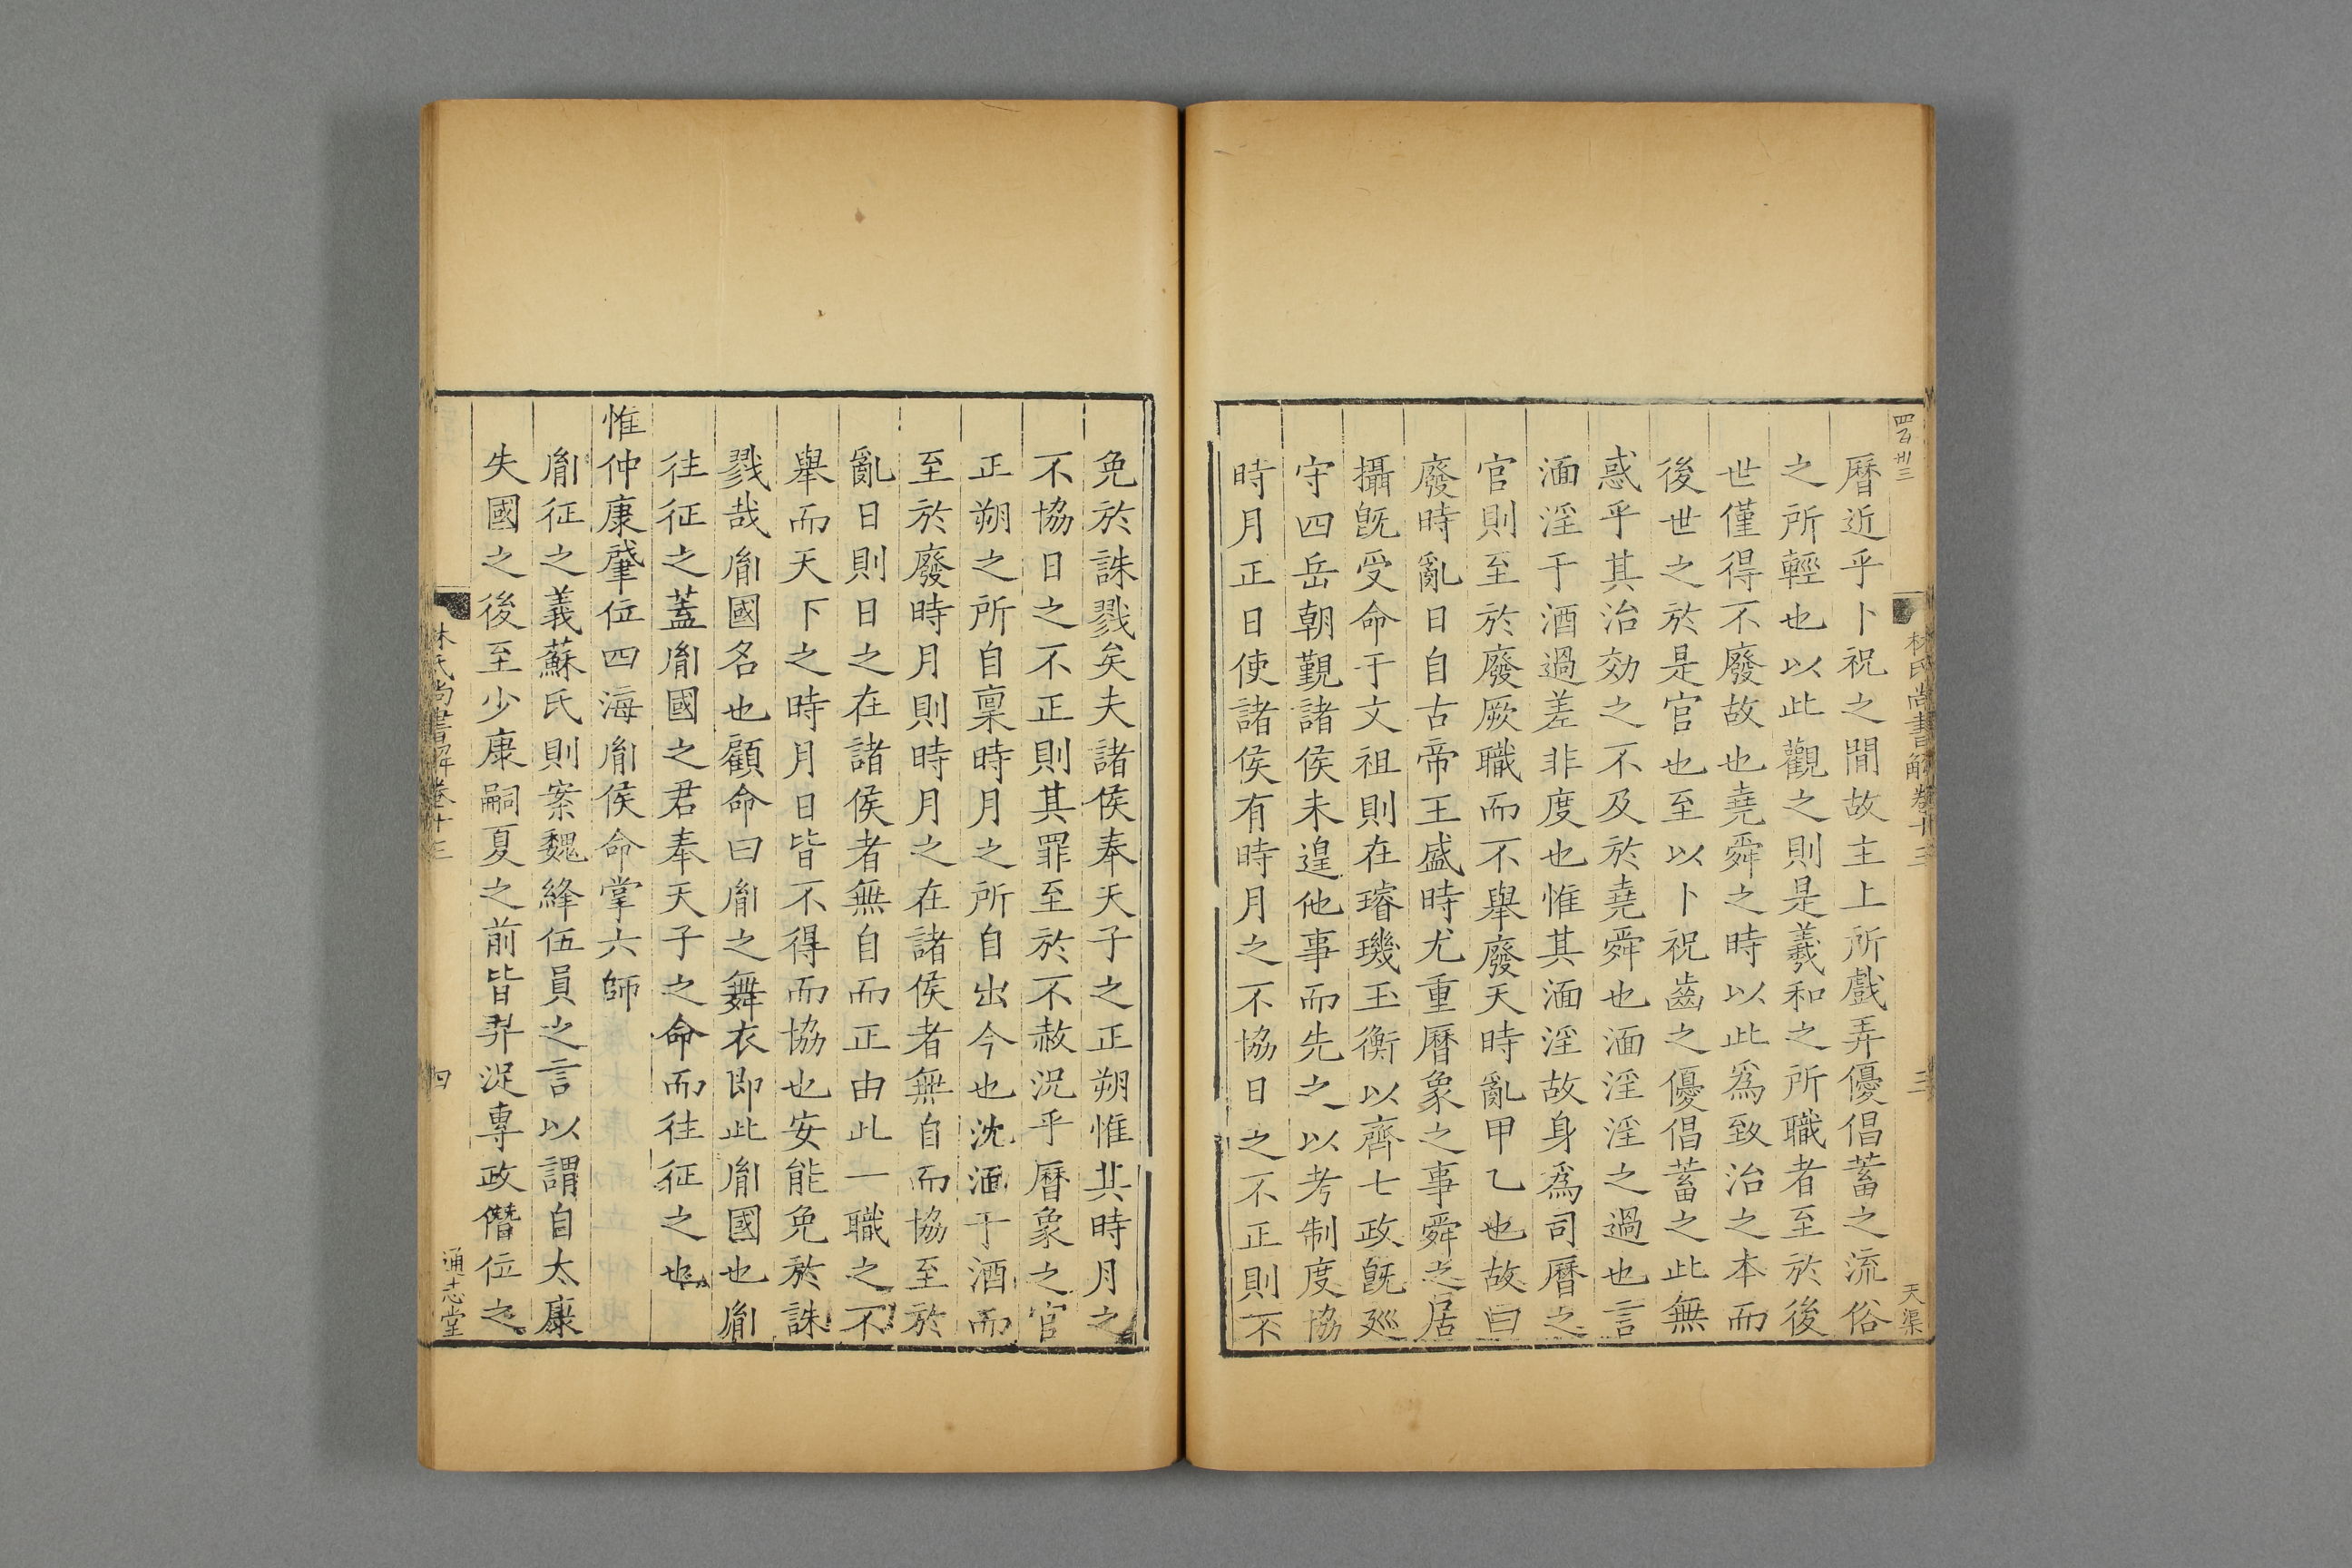 林氏尚書解卷十三
三
天渠
曆近乎卜祝之間故主上所戲弄優倡蓄之流俗
之所輕也以此觀之則是羲和之所職者至於後
世僅得不廢故也堯舜之時以此爲致治之本而
後世之於是官也至以卜祝齒之優倡蓄之此無
惑乎其治効之不及於堯舜也湎淫淫之過也言
湎淫于酒過差非度也惟其湎淫故身爲司曆之
官則至於廢厥職而不舉廢天時亂甲乙也故曰
廢時亂日自古帝王盛時尤重曆象之事舜之居
攝旣受命于文祖則在璿璣玉衡以齊七政旣廵
守四岳朝覲諸侯未遑他事而先之以考制度協
時月正日使諸侯有時月之不協日之不正則不
免於誅戮矣夫諸侯奉天子之正朔惟其時月之
不協日之不正則其罪至於不赦況乎曆象之官
正朔之所自稟時月之所自出今也沈湎于酒而
至於廢時月則時月之在諸侯者無自而協至於
亂日則日之在諸侯者無自而正由此一職之不
舉而天下之時月日皆不得而協也安能免於誅
戮哉胤國名也顧命曰胤之舞衣即此胤國也胤
往征之蓋胤國之君奉天子之命而往征之也
惟仲康肇位四海胤侯命掌六師
胤征之義蘇氏則案魏絳伍員之言以謂自太康
失國之後至少康嗣夏之前皆羿浞專政僭位之
林氏尚書解卷十三
四
通志堂